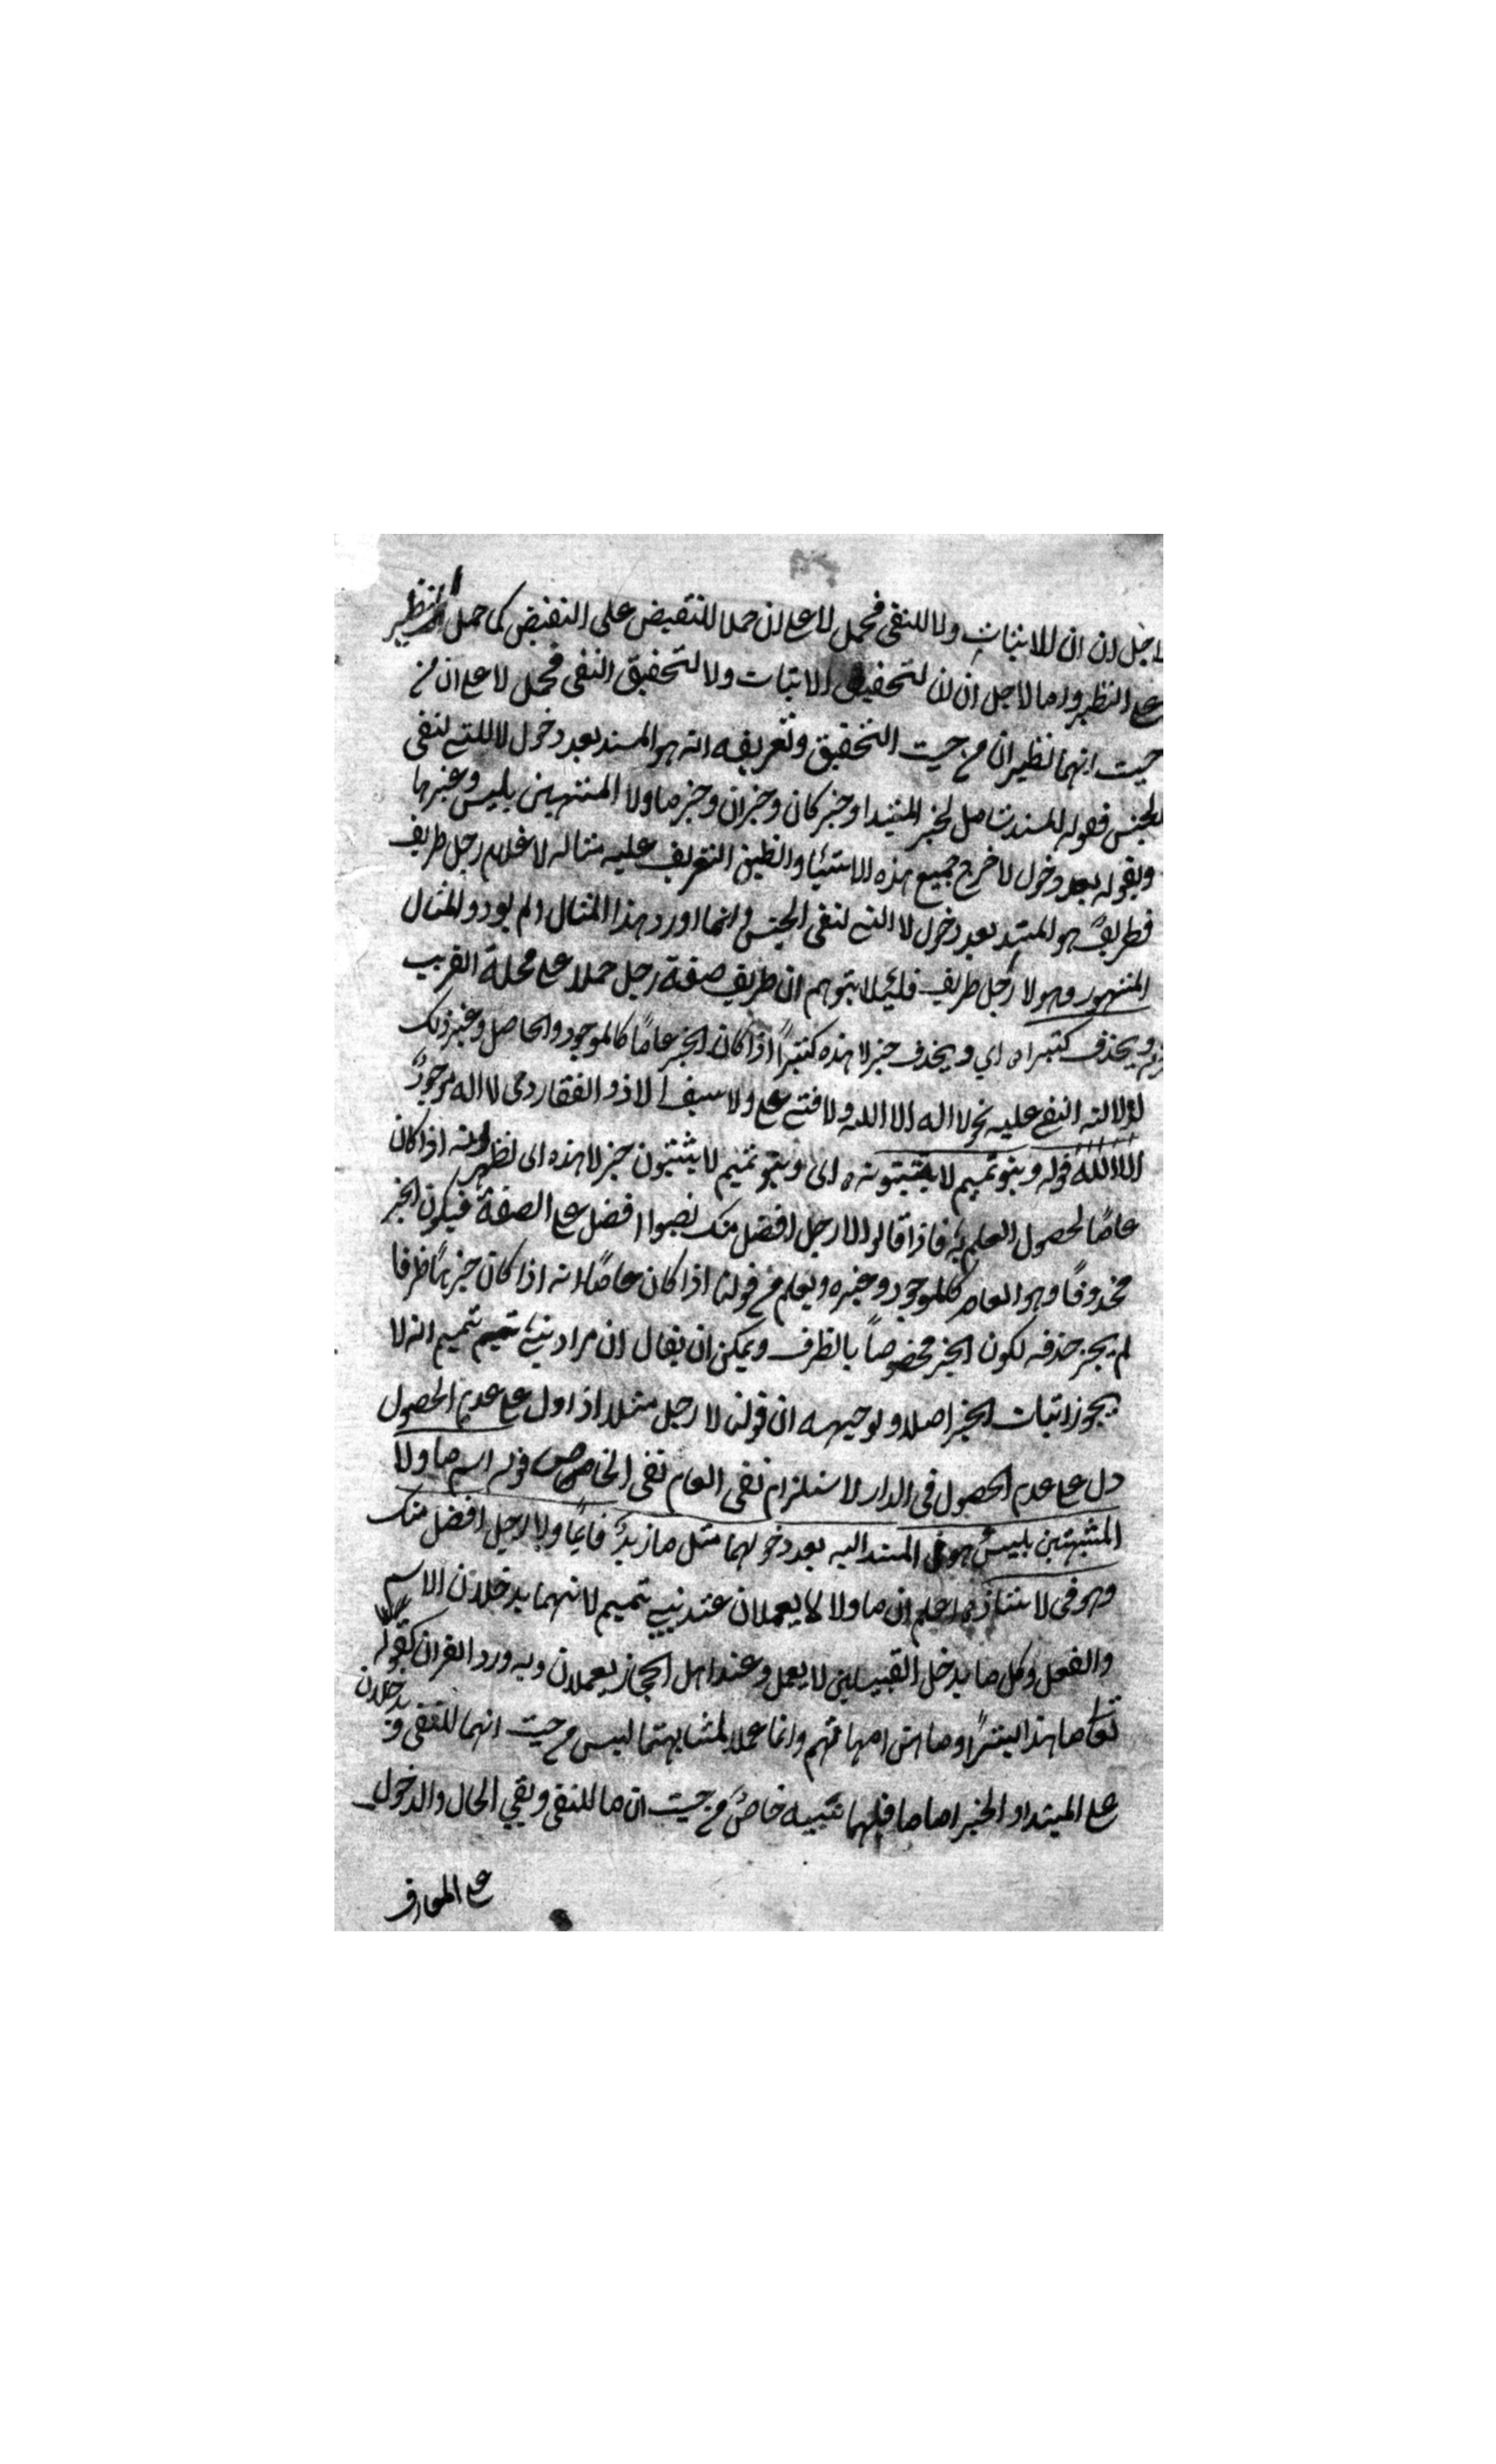 لاجل ان ان للاثبات ولا للنفى فحمل لا على ان حملا للنقيض على النقيض كما حمل النظير
على النظير واما لاجل ان ان لتحقيق الاثبات ولا لتحقيق النفى فحمل لا على ان من
حيث انهما نظيران من حيث التحقيق وتعريفه انه هو المسند بعد دخول لا التى لنفى
الجنس فقوله المسند شامل لخبر المبتدا وخبر كان وخبر ان وخبر ما ولا المشبهتين بليس وغيرها
وبقوله بعد دخول لا خرج جميع هذه الاشيا وانطبق التعريف عليه مثاله لا غلام رجل ظريف
فظريف هو المسند بعد دخول لا التى لنفى الجنس وانما اورد هذا المثال ولم يورد المثال
المشهور وهو لا رجل ظريف فلئلا يتوهم ان ظريف صفة رجل حملا على محله القريب
ويحذف كثيرا اى ويحذف خبر لا هذه كثيرا اذا كان الخبر عاما كالموجود والحاصل وغير ذلك
لدلالة النفى عليه نحو لا اله الا الله ولا فتى الا على ولا سيف الا ذو الفقار اى لا اله موجود
الا الله قوله وبنو تميم لا يثبتونه اى وبنو تميم لا يثبتون خبر لا هذه اى لظهوره اذا كان
عاما لحصول العلم به فاذا قالوا لا رجل افضل منك نصبوا افضل على الصفة فيكون الخبر
محذوفا وهو العام كالموجود وغيره ويعلم من قولنا اذا كان عاما انه اذا كان خبرها ظرفا
لم يجز حذفه لكون الخبر مخصوصا بالظرف ويمكن ان يقال ان مراد بنى تميم انه لا
يجوز اثبات الخبر اصلا وتوجيهه ان قولنا لا رجل مثلا اذا دل على عدم الحصول
دل على عدم الحصول فى الدار لاستلزام نفى العام نفى الخاص قوله اسم ما ولا
المشبهتين بليس هو المسند اليه بعد دخولهما مثل ما زيد قائما ولا رجل افضل منك
وهو فى لا شاذ اعلم ان ما ولا لا يعملان عند بنى تميم لانهما يدخلان الاسم
والفعل وكل ما يدخل القبيلين لا يعمل وعند اهل الحجاز يعملان وبه ورد القران كقوله
تعالى ما هذا بشرا وما هن امهاتهم وانما عملا لمشابهتهما ليس من حيث انهما للنفى و يدخلان
على المبتدا والخبر اما ما فلها شبيه خاص من حيث ان ما للنفى ونفى الحال والدخول
على المعارف